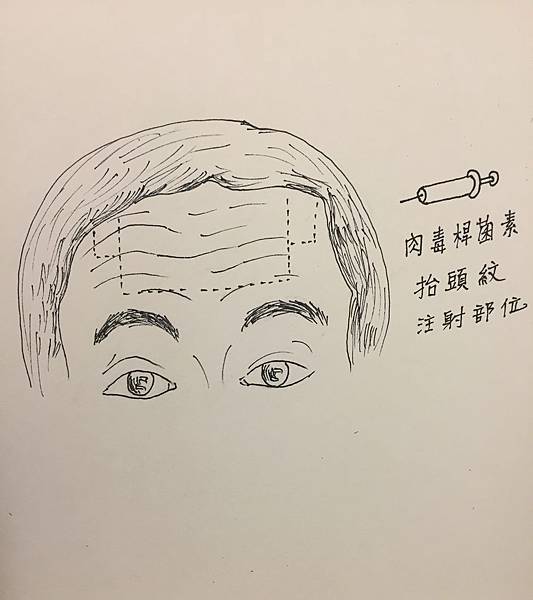 肉毒桿菌素
抬頭紋
注射部位